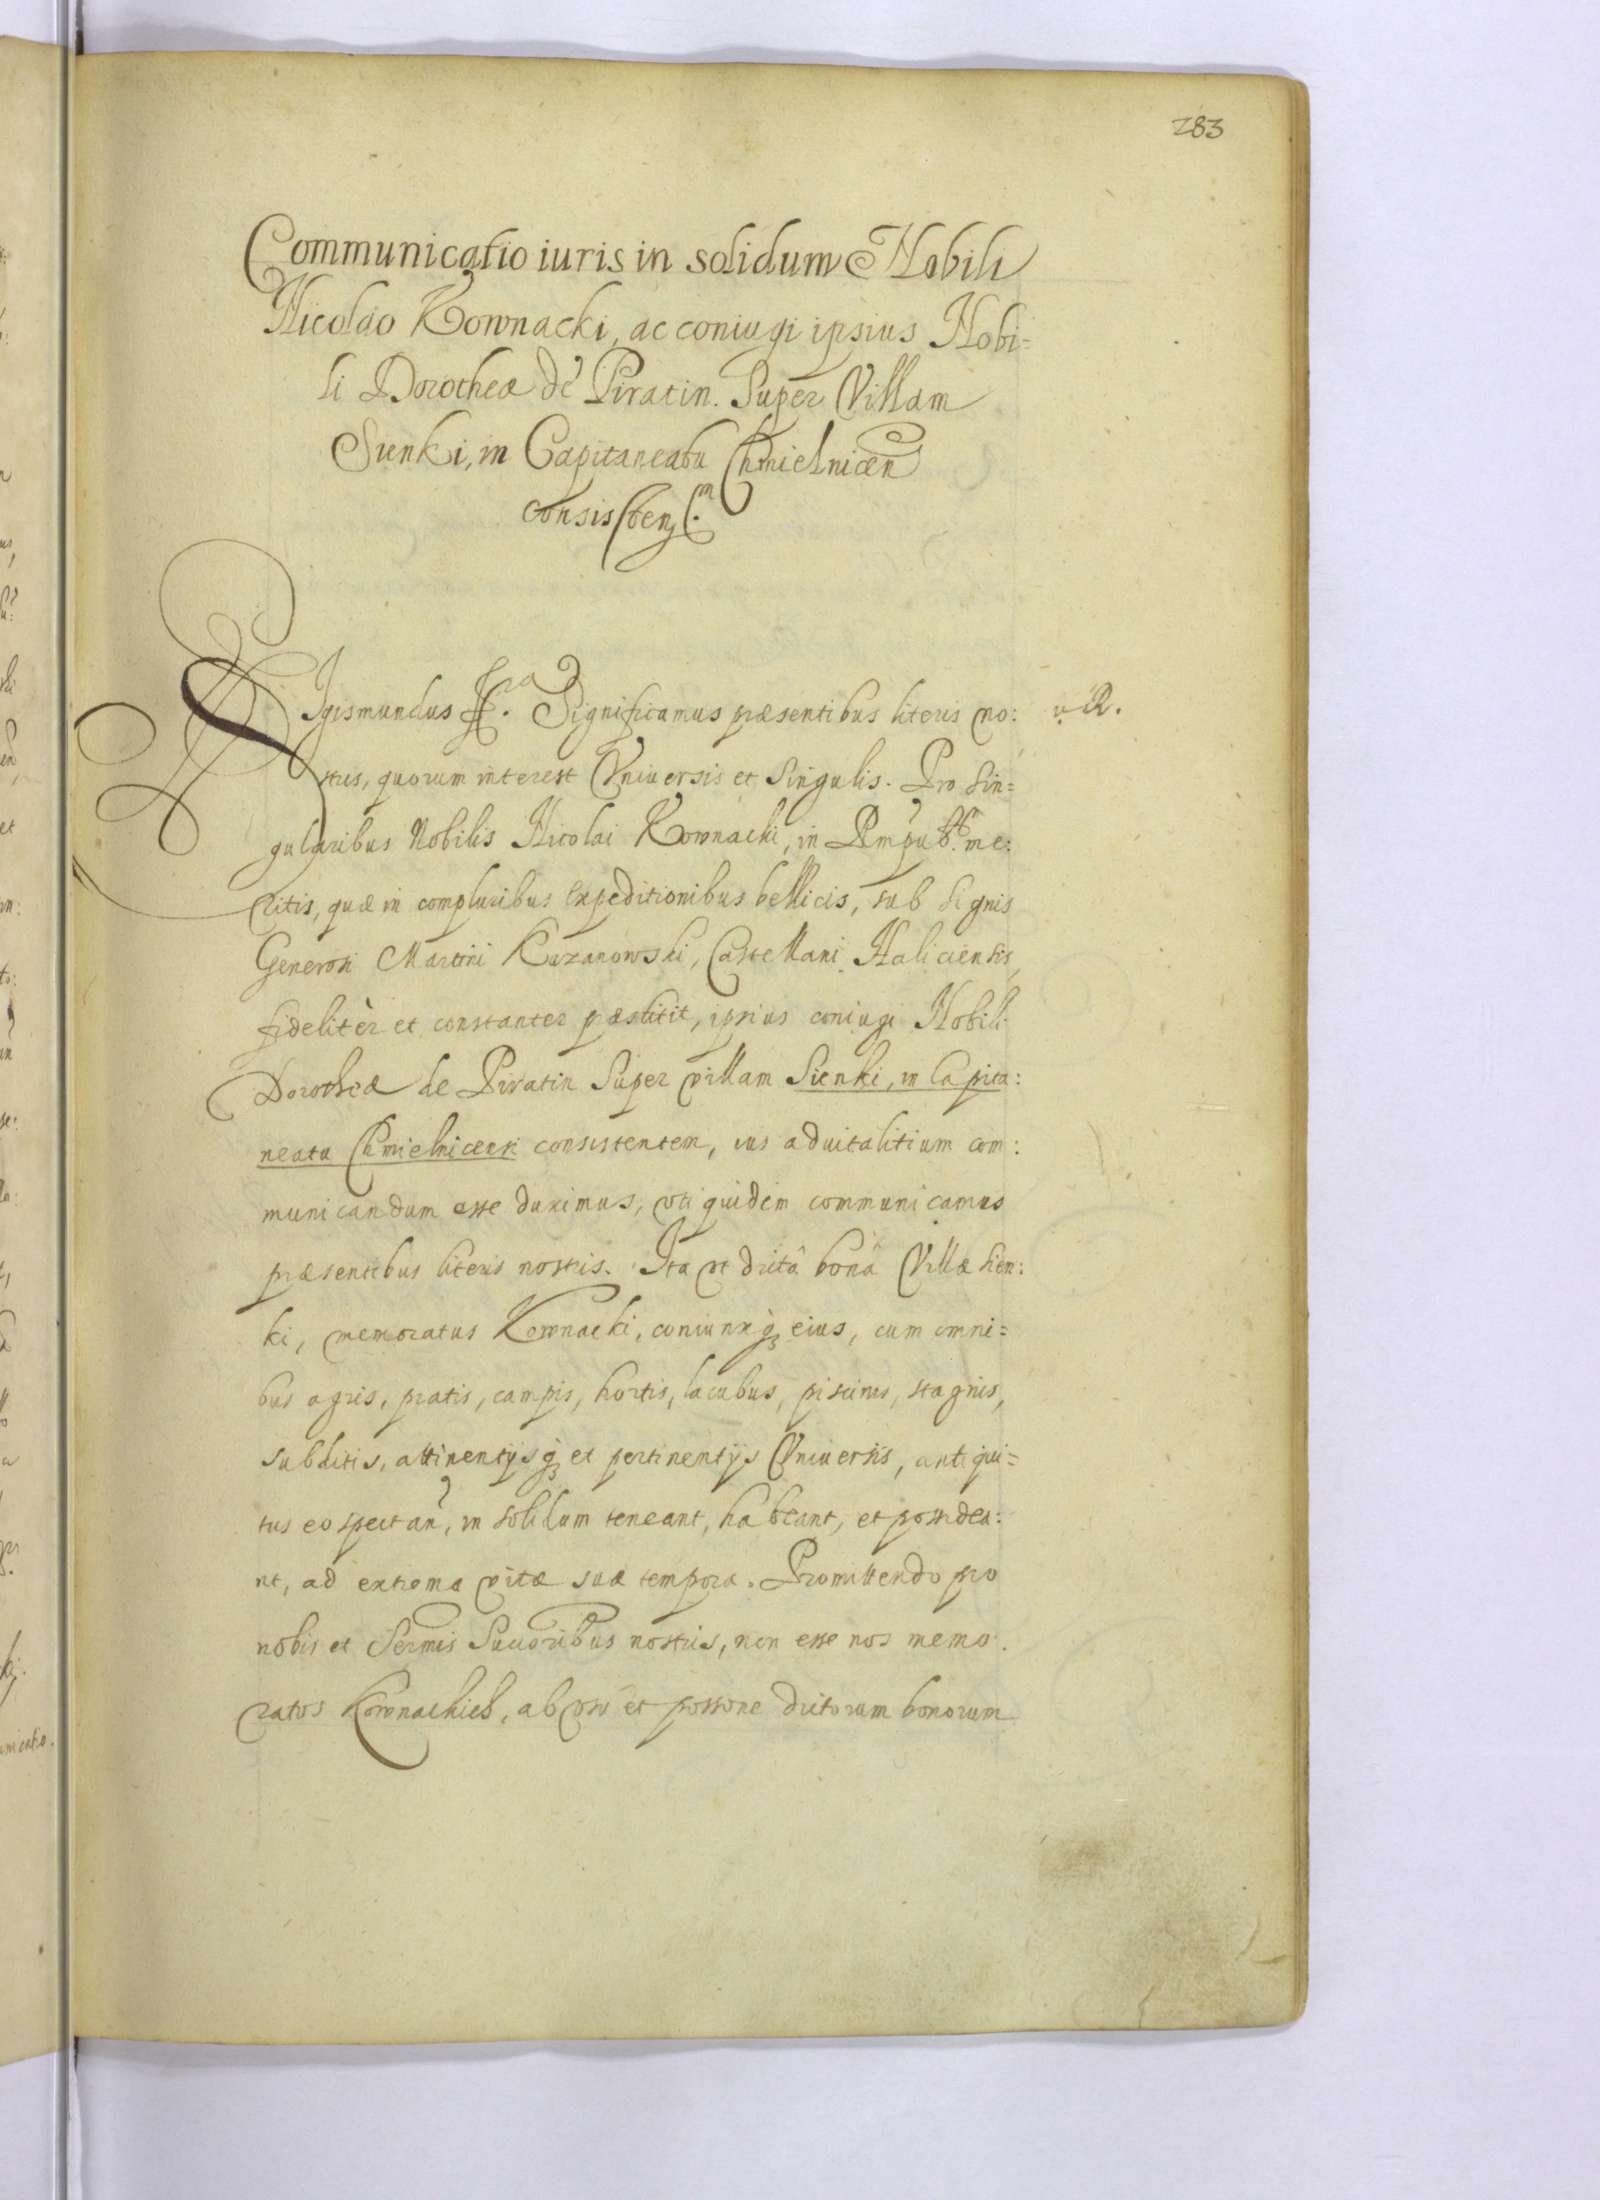 283
Communicatio iuris in solidum Nobili
Nicolao Kownacki, ac coniugi ipsius Nobi=
li Dorotheæ de Piratin. Super Villam
Sienki, in Capitaneatu Chmielnicen
consisten
SIgismundus Significamus præsentibus literis no:
stris, quorum interest Vniuersis et Singulis. Pro Sin=
gularibus Nobilis Nicolai Kownacki, in me:
ritis, quæ in compluribus expeditionibus bellicis, sub signis
Generosi Martini Kazanowski, Castellani Haliciensis,
fidelitèr et constanter præstitit, ipsius coniugi Nobili
Dorotheæ de Piratin Super villam Sienki, in Capita:
neatu Chmielnicensi consistentem, ius aduitalitium com:
municandum esse duximus, vti quidem communicamus
præsentibus literis nostris. Ita vt dictâ bonâ Villæ Sien:
ki, memoratus Kownacki, coniunxq̨ eius, cum omni=
bus agris, pratis, campis, hortis, lacubus, piscinis, stagnis,
subditis, attinentijsq̨ et pertinentijs Vniuersis, antiqui=
tus eo spectan, in solidum teneant, habeant, et possidea:
nt, ad extrema vitæ suæ tempora. Promittendo pro
nobis et Sermis Succoribus nostris, non esse nos memo:
ratos Kownackich, ab vsu et possone dictorum bonorum